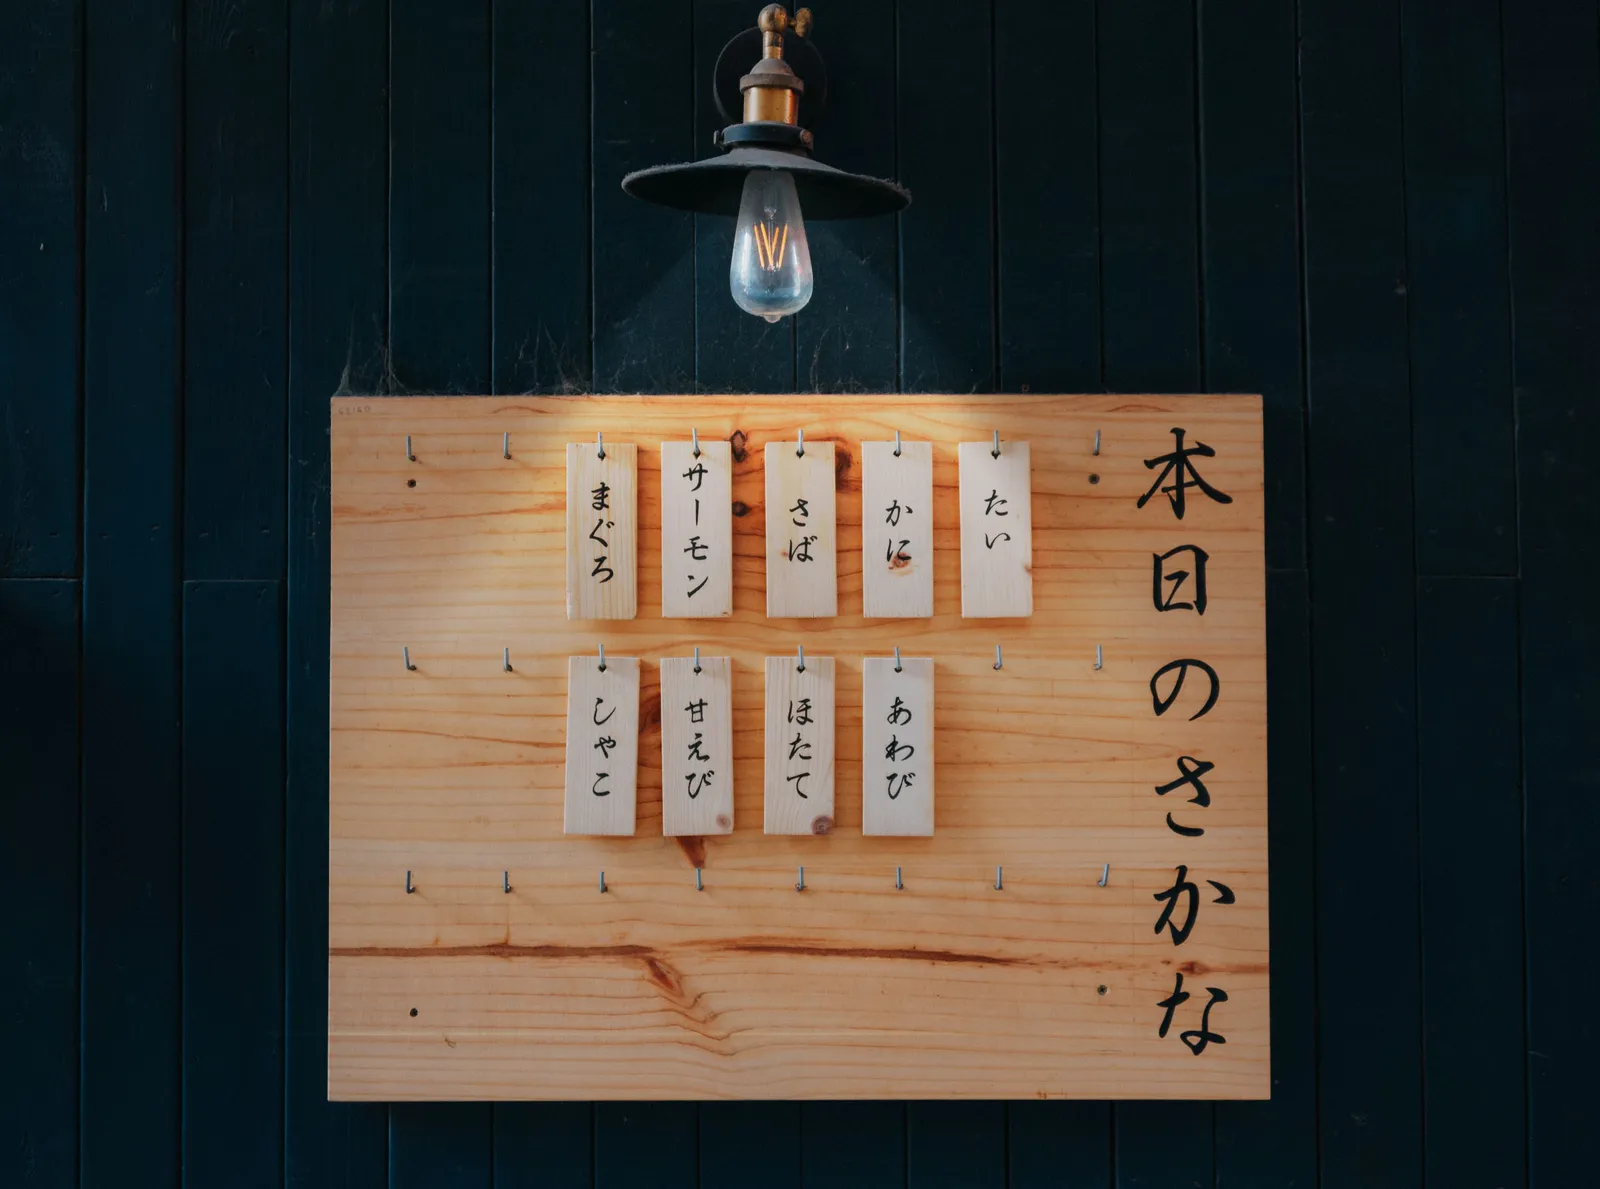 本日のさかな
たい
かに
さば
サーモン
まぐろ
あわび
ほたて
甘えび
しゃこ